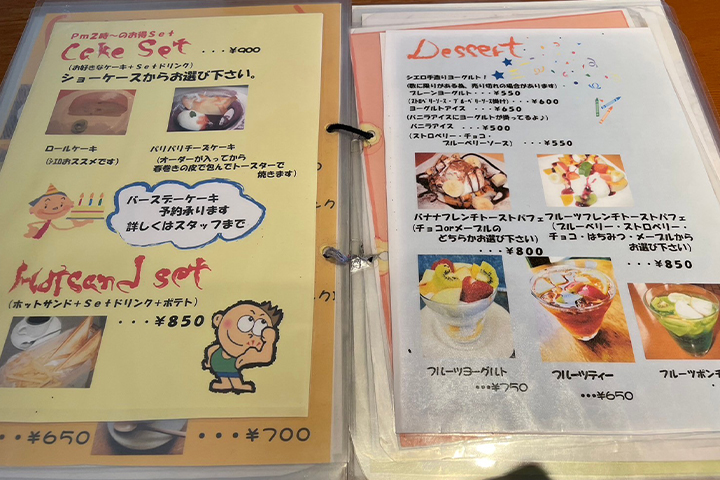 Pm2時〜のお得Set
Cake Set ・・・¥900
(お好きなケーキ+Setドリンク)
ショーケースからお選び下さい。
ロールケーキ
(シエロおススメです)
パリパリチーズケーキ
(オーダーが入ってから
春巻きの皮で包んでトースターで
焼きます)
バースデーケーキ
予約承ります
詳しくはスタッフまで
Hotsand set
(ホットサンド+Setドリンク+ポテト)
・・・¥850
・・¥650
・・・¥700
Dessert
シエロ手造りヨーグルト!
(数に限りがある為、売り切れの場合があります)
プレーンヨーグルト・・・¥550
(ストロベリーソース・ブルーベリーソース掛け)・・・¥600
ヨーグルトアイス ・・・¥650
(バニラアイスにヨーグルトが掛ってるよ♪)
バニラアイス ・・・¥500
(ストロベリー・チョコ・
ブルーベリーソース) ・・・¥550
バナナフレンチトーストパフェ
(チョコorメープルの
どちらかお選び下さい)
・・・¥800
フルーツフレンチトーストパフェ
(ブルーベリー・ストロベリー・
チョコ・はちみつ・メープルから
お選び下さい)
・・・¥850
フルーツヨーグルト
・・・¥750
フルーツティー
・・・¥650
フルーツポンチ